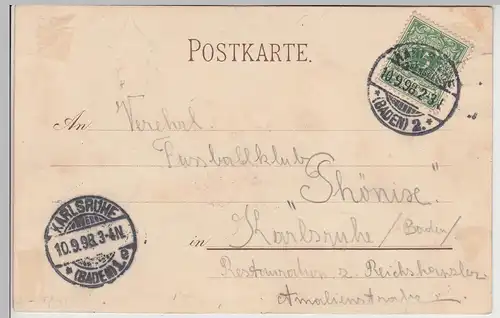 POSTKARTE.
KARLSRUHE
10.9.98.2-3N.
*(BADEN) 2.*
An Verehrl.
Fussballklub
"Phönix"
in Karlsruhe/Baden
Restauration z. Reichskanzler
Amalienstraße
KARLSRUHE
10.9.98.3-4N.
*(BADEN) 1.e